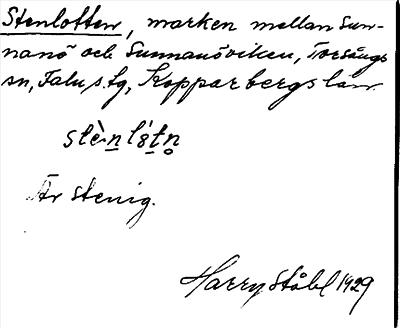 Stenlotten, marken mellan Sun-
nanö och Sunnanöviken, Torsångs
sn, Falu s. tg, Kopparbergs län.
stè̀nl8́tn̥
Är stenig.
Harry Ståhl 1929